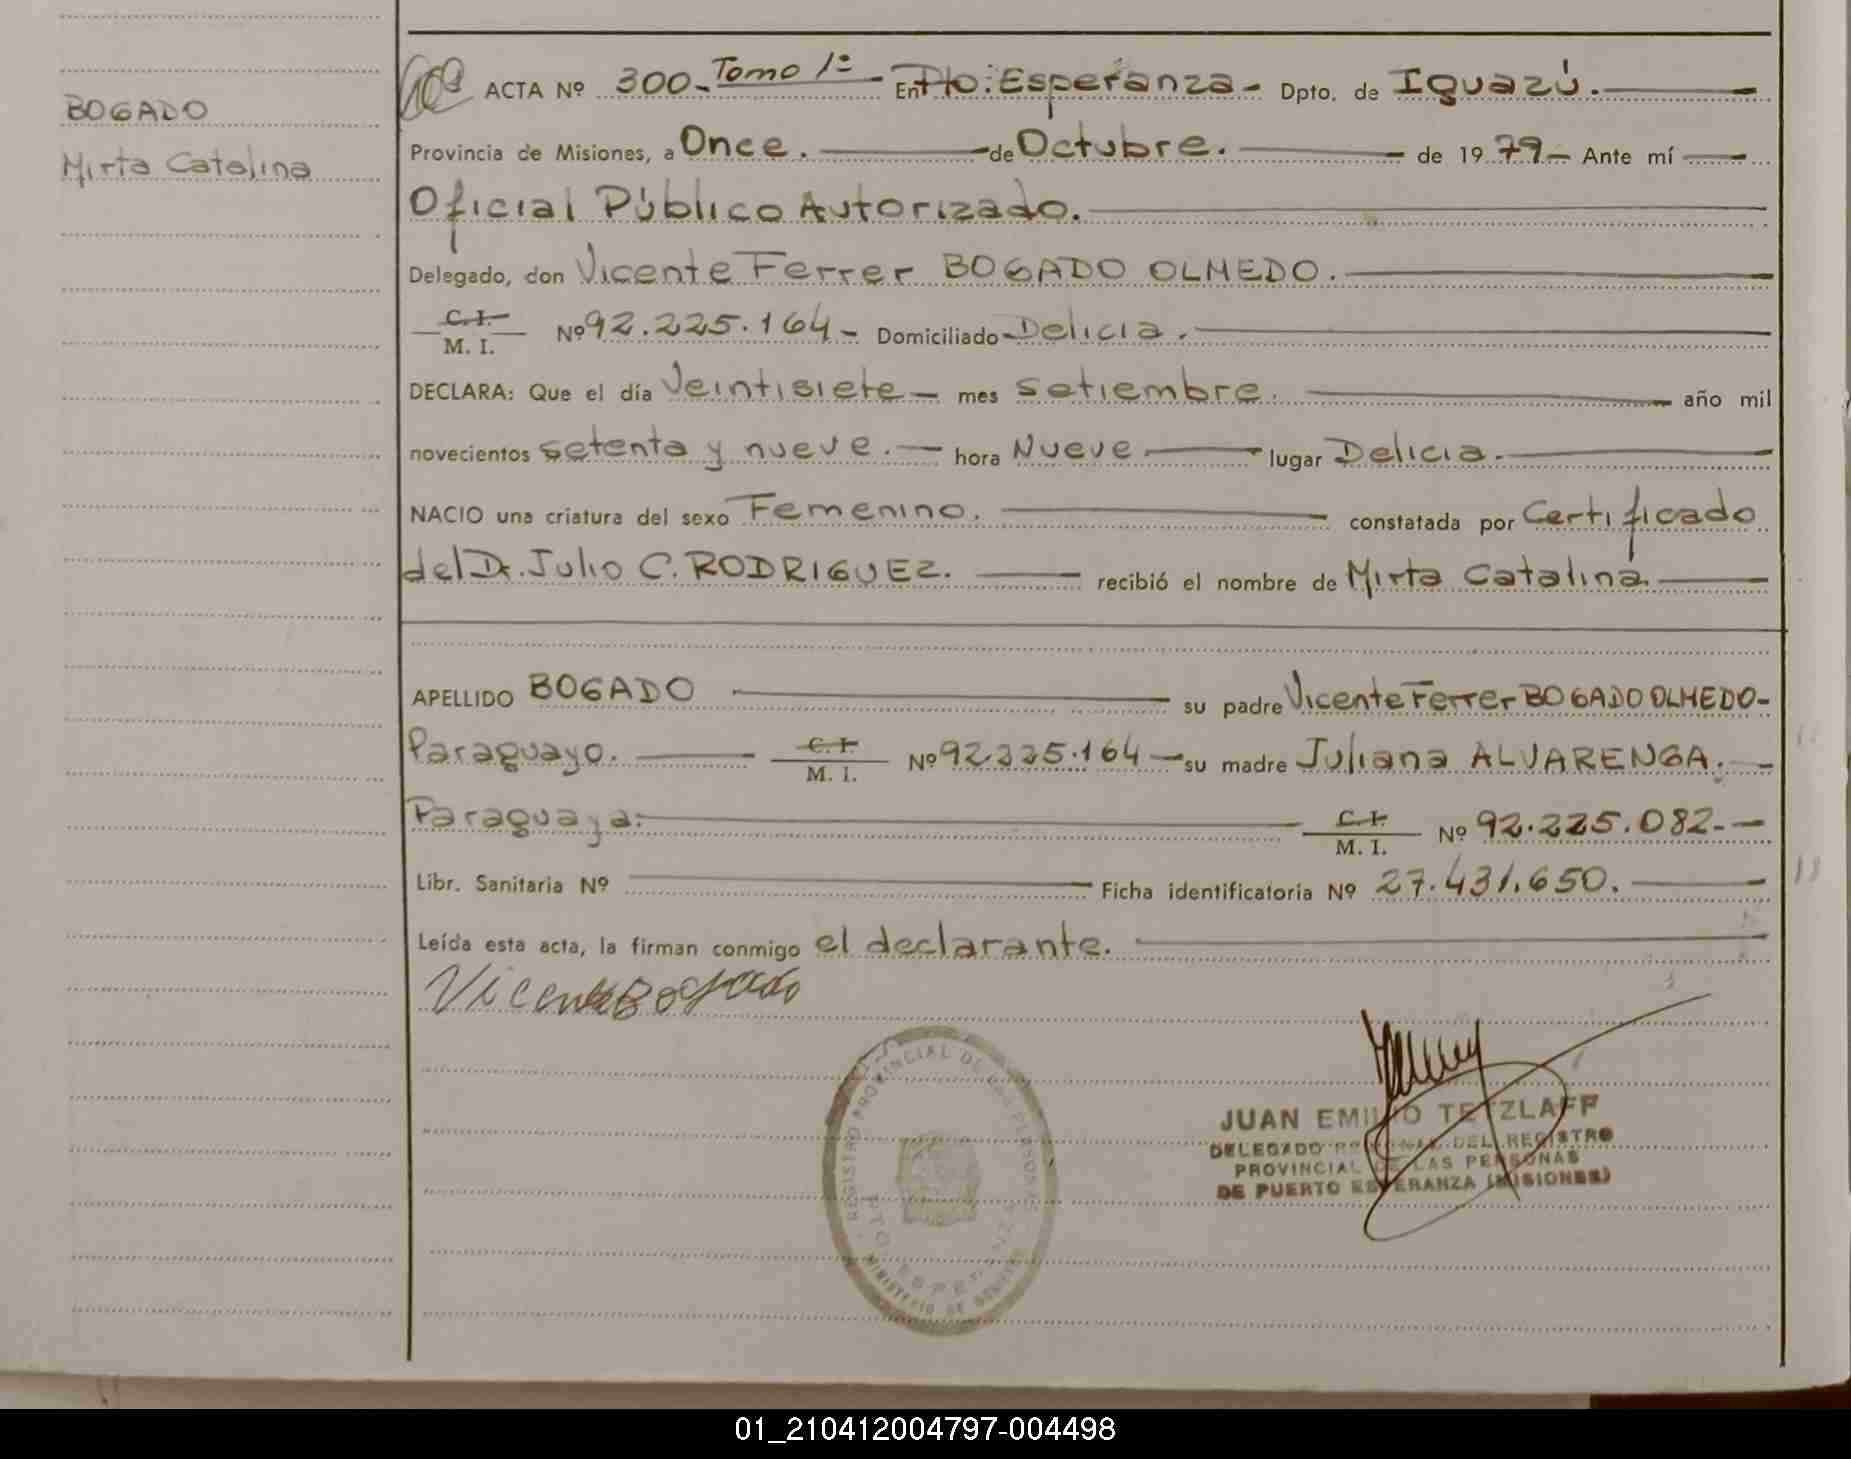 BOGADO
Mirta Catalina
ACTA Nº 300.- Tomo 1º - En Pto: Esperanza - Dpto. de Iguazú.
Provincia de Misiones, a Once. de Octubre. de 1979.- Ante mí
Oficial Público Autorizado.
Delegado, don Vicente Ferrer BOGADO OLMEDO.
C. I.
M. I. Nº 92.225.164 - Domiciliado Delicia.
DECLARA: Que el día Veintisiete - mes setiembre. año mil
novecientos setenta y nueve. - hora Nueve lugar Delicia.
NACIO una criatura del sexo Femenino. constatada por Certificado
del Dr. Julio C. RODRIGUEZ. recibió el nombre de Mirta Catalina.
APELLIDO BOGADO su padre Vicente Ferrer BOGADO OLMEDO-
Paraguayo. C. I.
M. I. Nº 92.225.164 - su madre Juliana ALVARENGA. -
Paraguaya. C. I.
M. I. Nº 92.225.082.-
Libr. Sanitaria Nº Ficha identificatoria Nº 27.431.650.
Leída esta acta, la firman conmigo el declarante.
Vicente Bogado
REGISTRO PROVINCIAL DE LAS PERSONAS
PTO. ESPERANZA
MINISTERIO DE GOBIERNO
JUAN EMILIO TETZLAFF
DELEGADO REGIONAL DEL REGISTRO
PROVINCIAL DE LAS PERSONAS
DE PUERTO ESPERANZA (MISIONES)
01_210412004797-004498